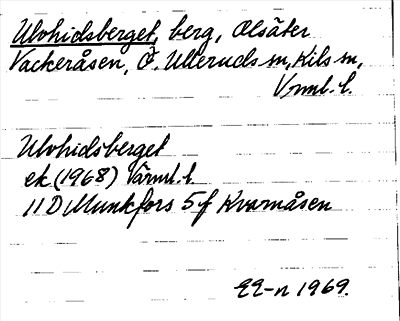 Ulvhidsberget, berg, Olsäter
Vackeråsen, Ö. Ulleruds sn, Kils sn,
Vrml. l.
Ulvhidsberget
ek (1968) Värml. l.
11 D Munkfors 5 f Kvarnåsen
1969.